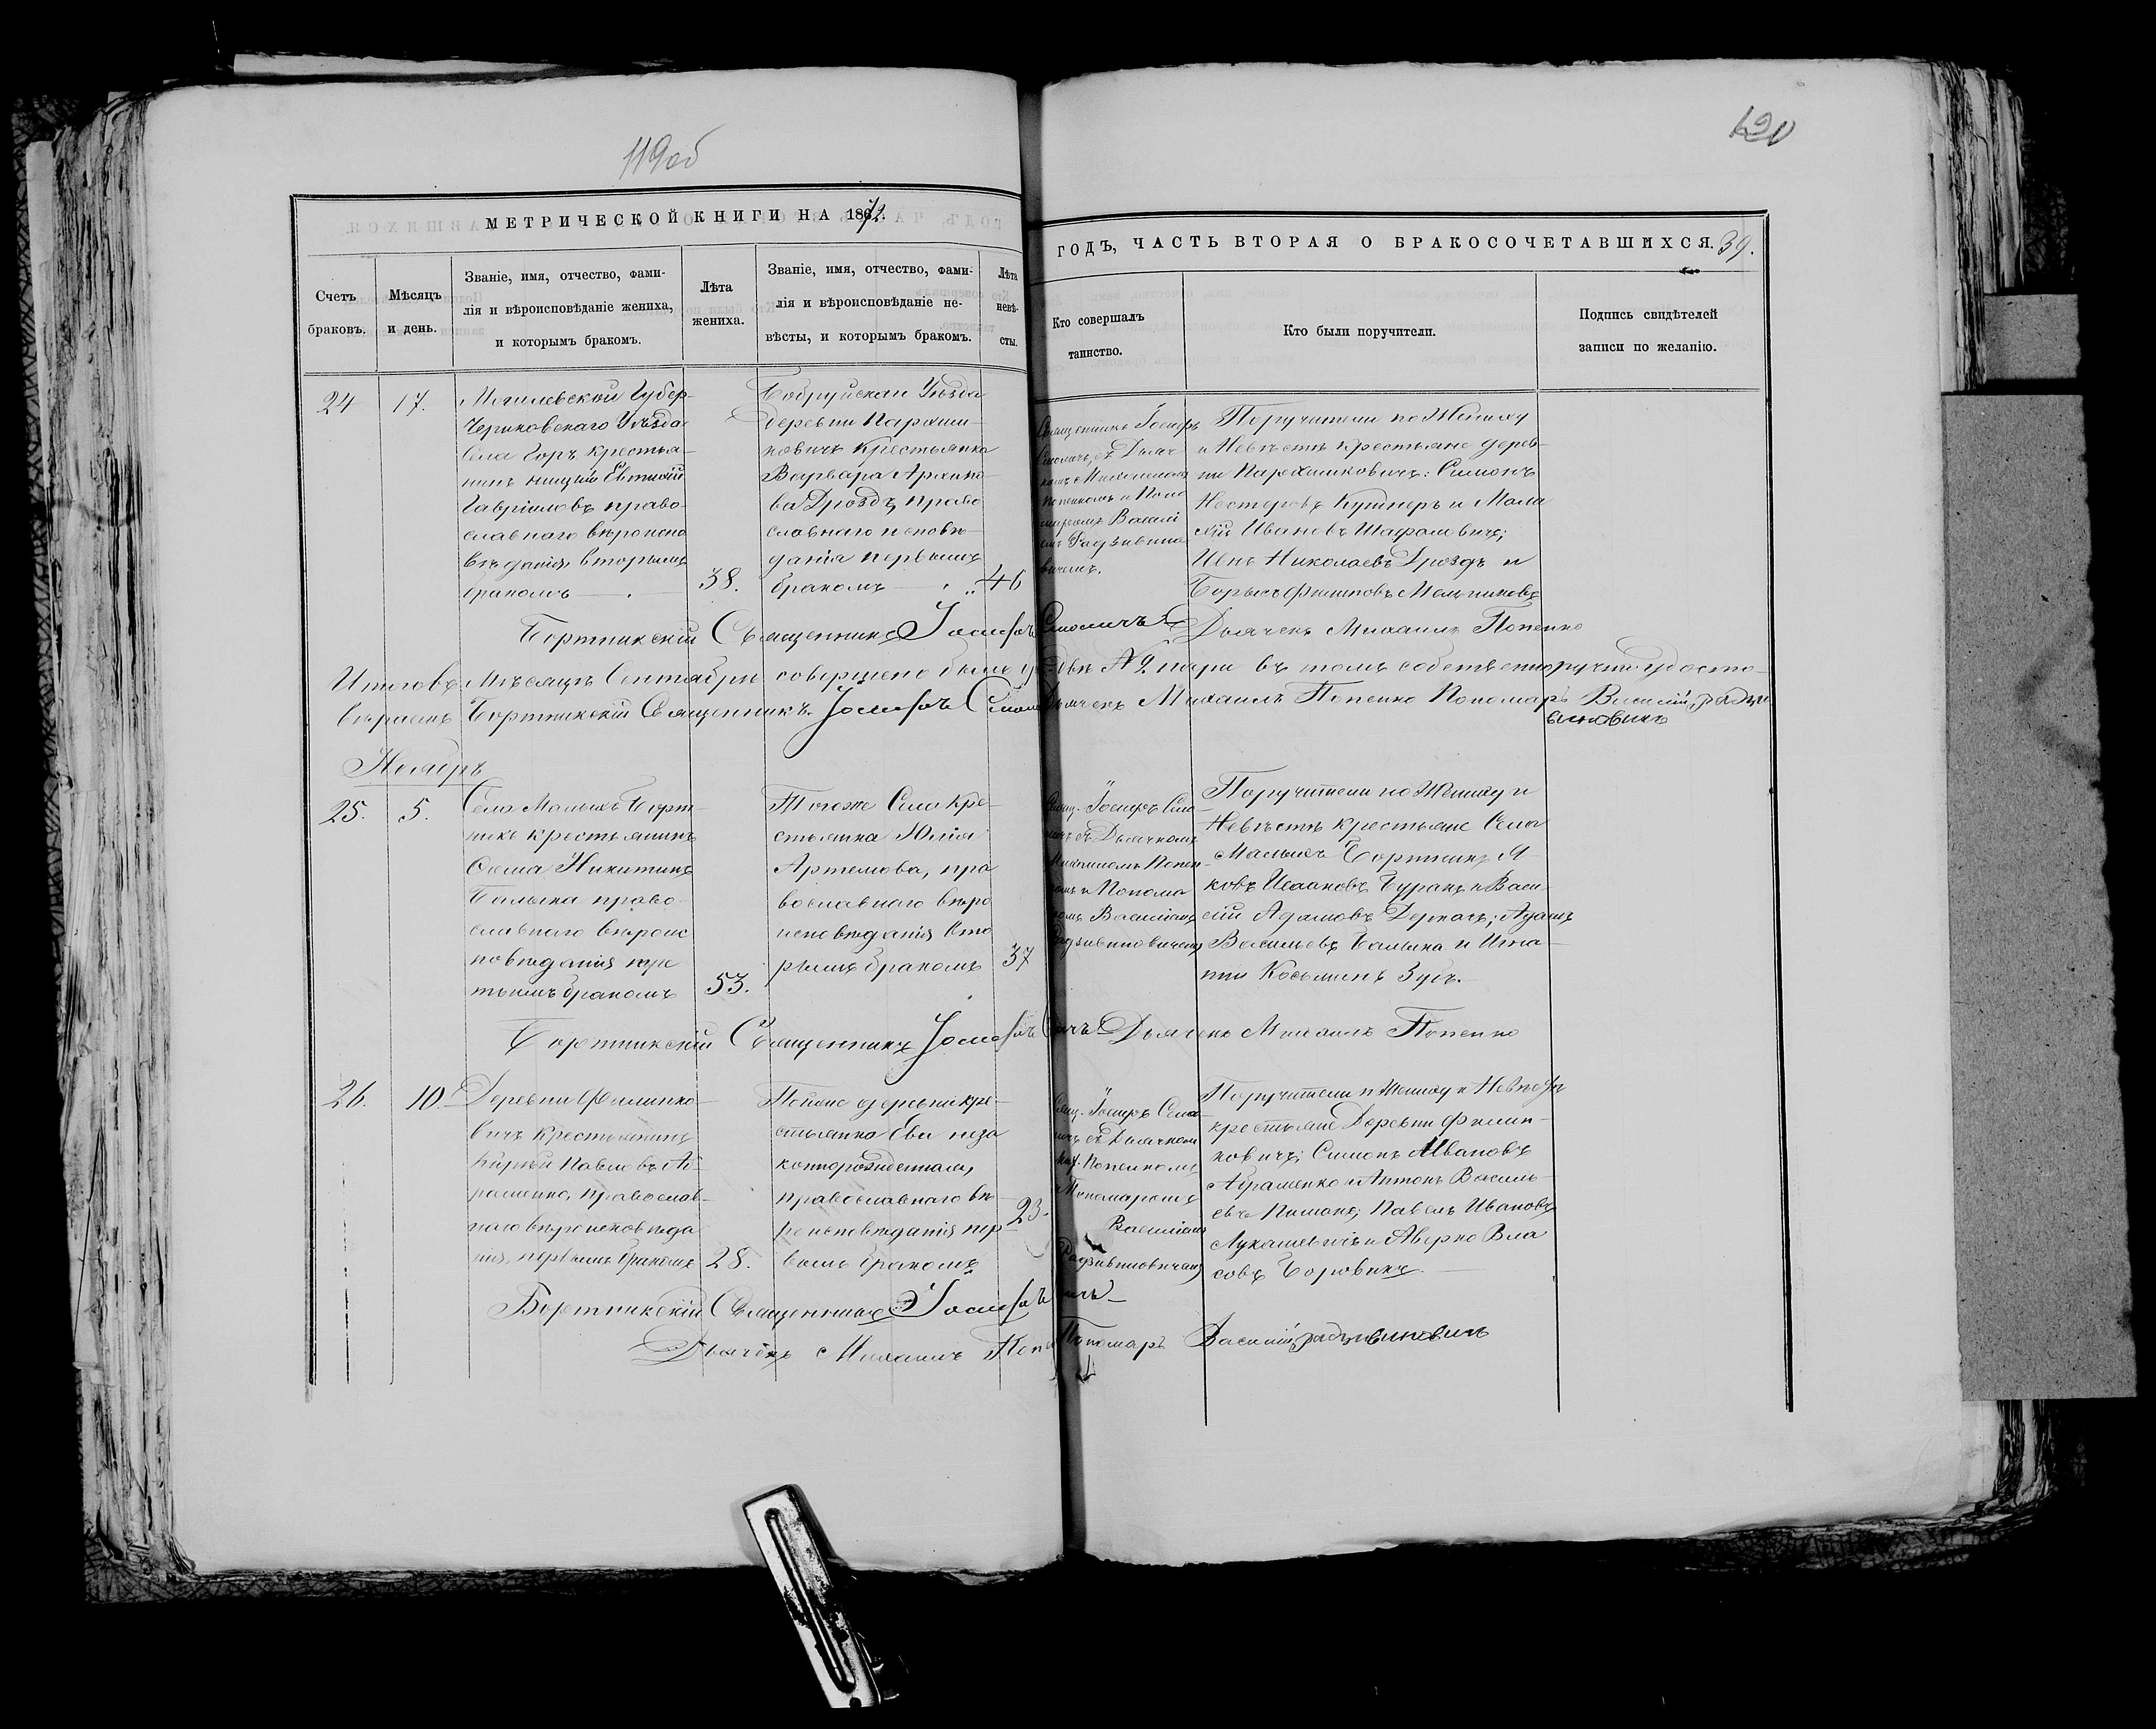 119об
120
МЕТРИЧЕСКОЙ КНИГИ НА 1872.
ГОДЪ, ЧАСТЬ ВТОРАЯ О БРАКОСОЧЕТАВШИХСЯ. 39.
Счетъ
браковъ.
Мѣсяцъ
и день.
Званіе, имя, отчество, фами-
лія и вѣроисповѣданіе жениха,
и которымъ бракомъ.
Лѣта
жениха.
Званіе, имя, отчество, фами-
лія и вѣроисповѣданіе не-
вѣсты, и которымъ бракомъ.
Лѣта
невѣ-
сты.
Кто совершалъ
таинство.
Кто были поручители.
Подпись свидѣтелей
записи по желанію.
24
17.
Могилевской Губер-
Чериковскаго Уѣзда
Села Горъ, крестья-
нинъ Евтихій
Гавріиловъ право-
славнаго вѣроиспо
вѣданія, вторымъ
бракомъ
38.
Бобруйскаго Уѣзда
Деревни Пархими-
ковичъ Крестьянка
Варвара Архипо
ва Дроздъ, право
славнаго исповѣ-
данія первымъ
бракомъ
46
Священникъ Іосифъ
Смоличъ, съ Дьяч-
комъ Михаиломъ
Попенкомъ и Поно
маремъ Василі
емъ Радзивино
вичемъ.
Поручители по Жениху
и Невѣстѣ крестьяне дерев-
ни Пархимковичъ: Симонъ
Нестеровъ Кушнеръ и Мала
хій Ивановъ Шафаловичъ;
Николаевъ Дроздъ и
Борысъ Филиповъ Мельниковъ
Бортникскій Священникъ Іосифъ Смоличъ Дьячекъ Михаилъ Попенко
Итого въ Мѣсяцѣ Сентябрѣ совершено было двѣ № 2 пари въ томъ собственноручно удосто-
вѣряемъ Бортникскій Священникъ Іосифъ Смоличъ Дьячекъ Михаилъ Попенко Пономарь Василій Радзи
виновичъ
Ноябрь
25.
5.
Села Малыхъ Борт-
никъ крестьянинъ
Ѳома Никитинъ
Балыка право-
славнаго вѣроис
повѣданія тре
тьимъ бракомъ
53.
Тогоже Села Кре-
стьянка Юлія
Артемова, пра
вославнаго вѣро
исповѣданія вто
рымъ бракомъ
37
Свящ. Іосифъ Смо-
личъ съ Дьячкомъ
Михаиломъ Попен-
комъ и Понома
ремъ Василіемъ
Радзивиновичемъ
Поручители по Жениху и
Невѣстѣ крестьяне Села
Малыхъ Бортникъ Я-
ковъ Исааковъ Буракъ и Васи
лій Адамовъ Деркачъ; Адамъ
Васильевъ Балыка и Игна-
тій Косьминъ Зубъ.
Бортникскій Священникъ Іосифъ Смоличъ Дьячекъ Михаилъ Попенко
26.
10.
Деревни Филипко-
вичъ крестьянинъ
Кирилъ Павловъ Аб-
раменко, православ-
наго вѣроисповѣда
нія, первымъ бракомъ
28.
Тойже деревни кре-
стьянка Ева неза
коннорожденная,
православнаго вѣ-
роисповѣданія пер-
вымъ бракомъ
23.
Свящ. Іосифъ Смо-
личъ съ Дьячкомъ
Мих. Попенкомъ
и Пономаремъ
Василіемъ
Радзивиновичемъ
Поручители по Жениху и Невѣстѣ
крестьяне Деревни Филип-
ковичъ; Симонъ Ивановъ
Абраменко и Антонъ Василь-
евъ Павелъ Ивановъ
Лукашевичъ и Аверко Вла
совъ Боровикъ.
Бортникскій Священникъ Іосифъ Смоличъ
Дьячекъ Михаилъ Попенко Пономарь Василій Радзивиновичъ